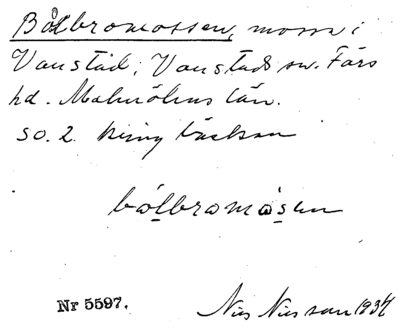 Bålbromossen, mosse i
Vanstad, Vanstads sn. Färs
hd. Malmöhus län.
SO. 2. kring bäcken
bålbromosen
Nr 5597.
Nils Nilsson 1934